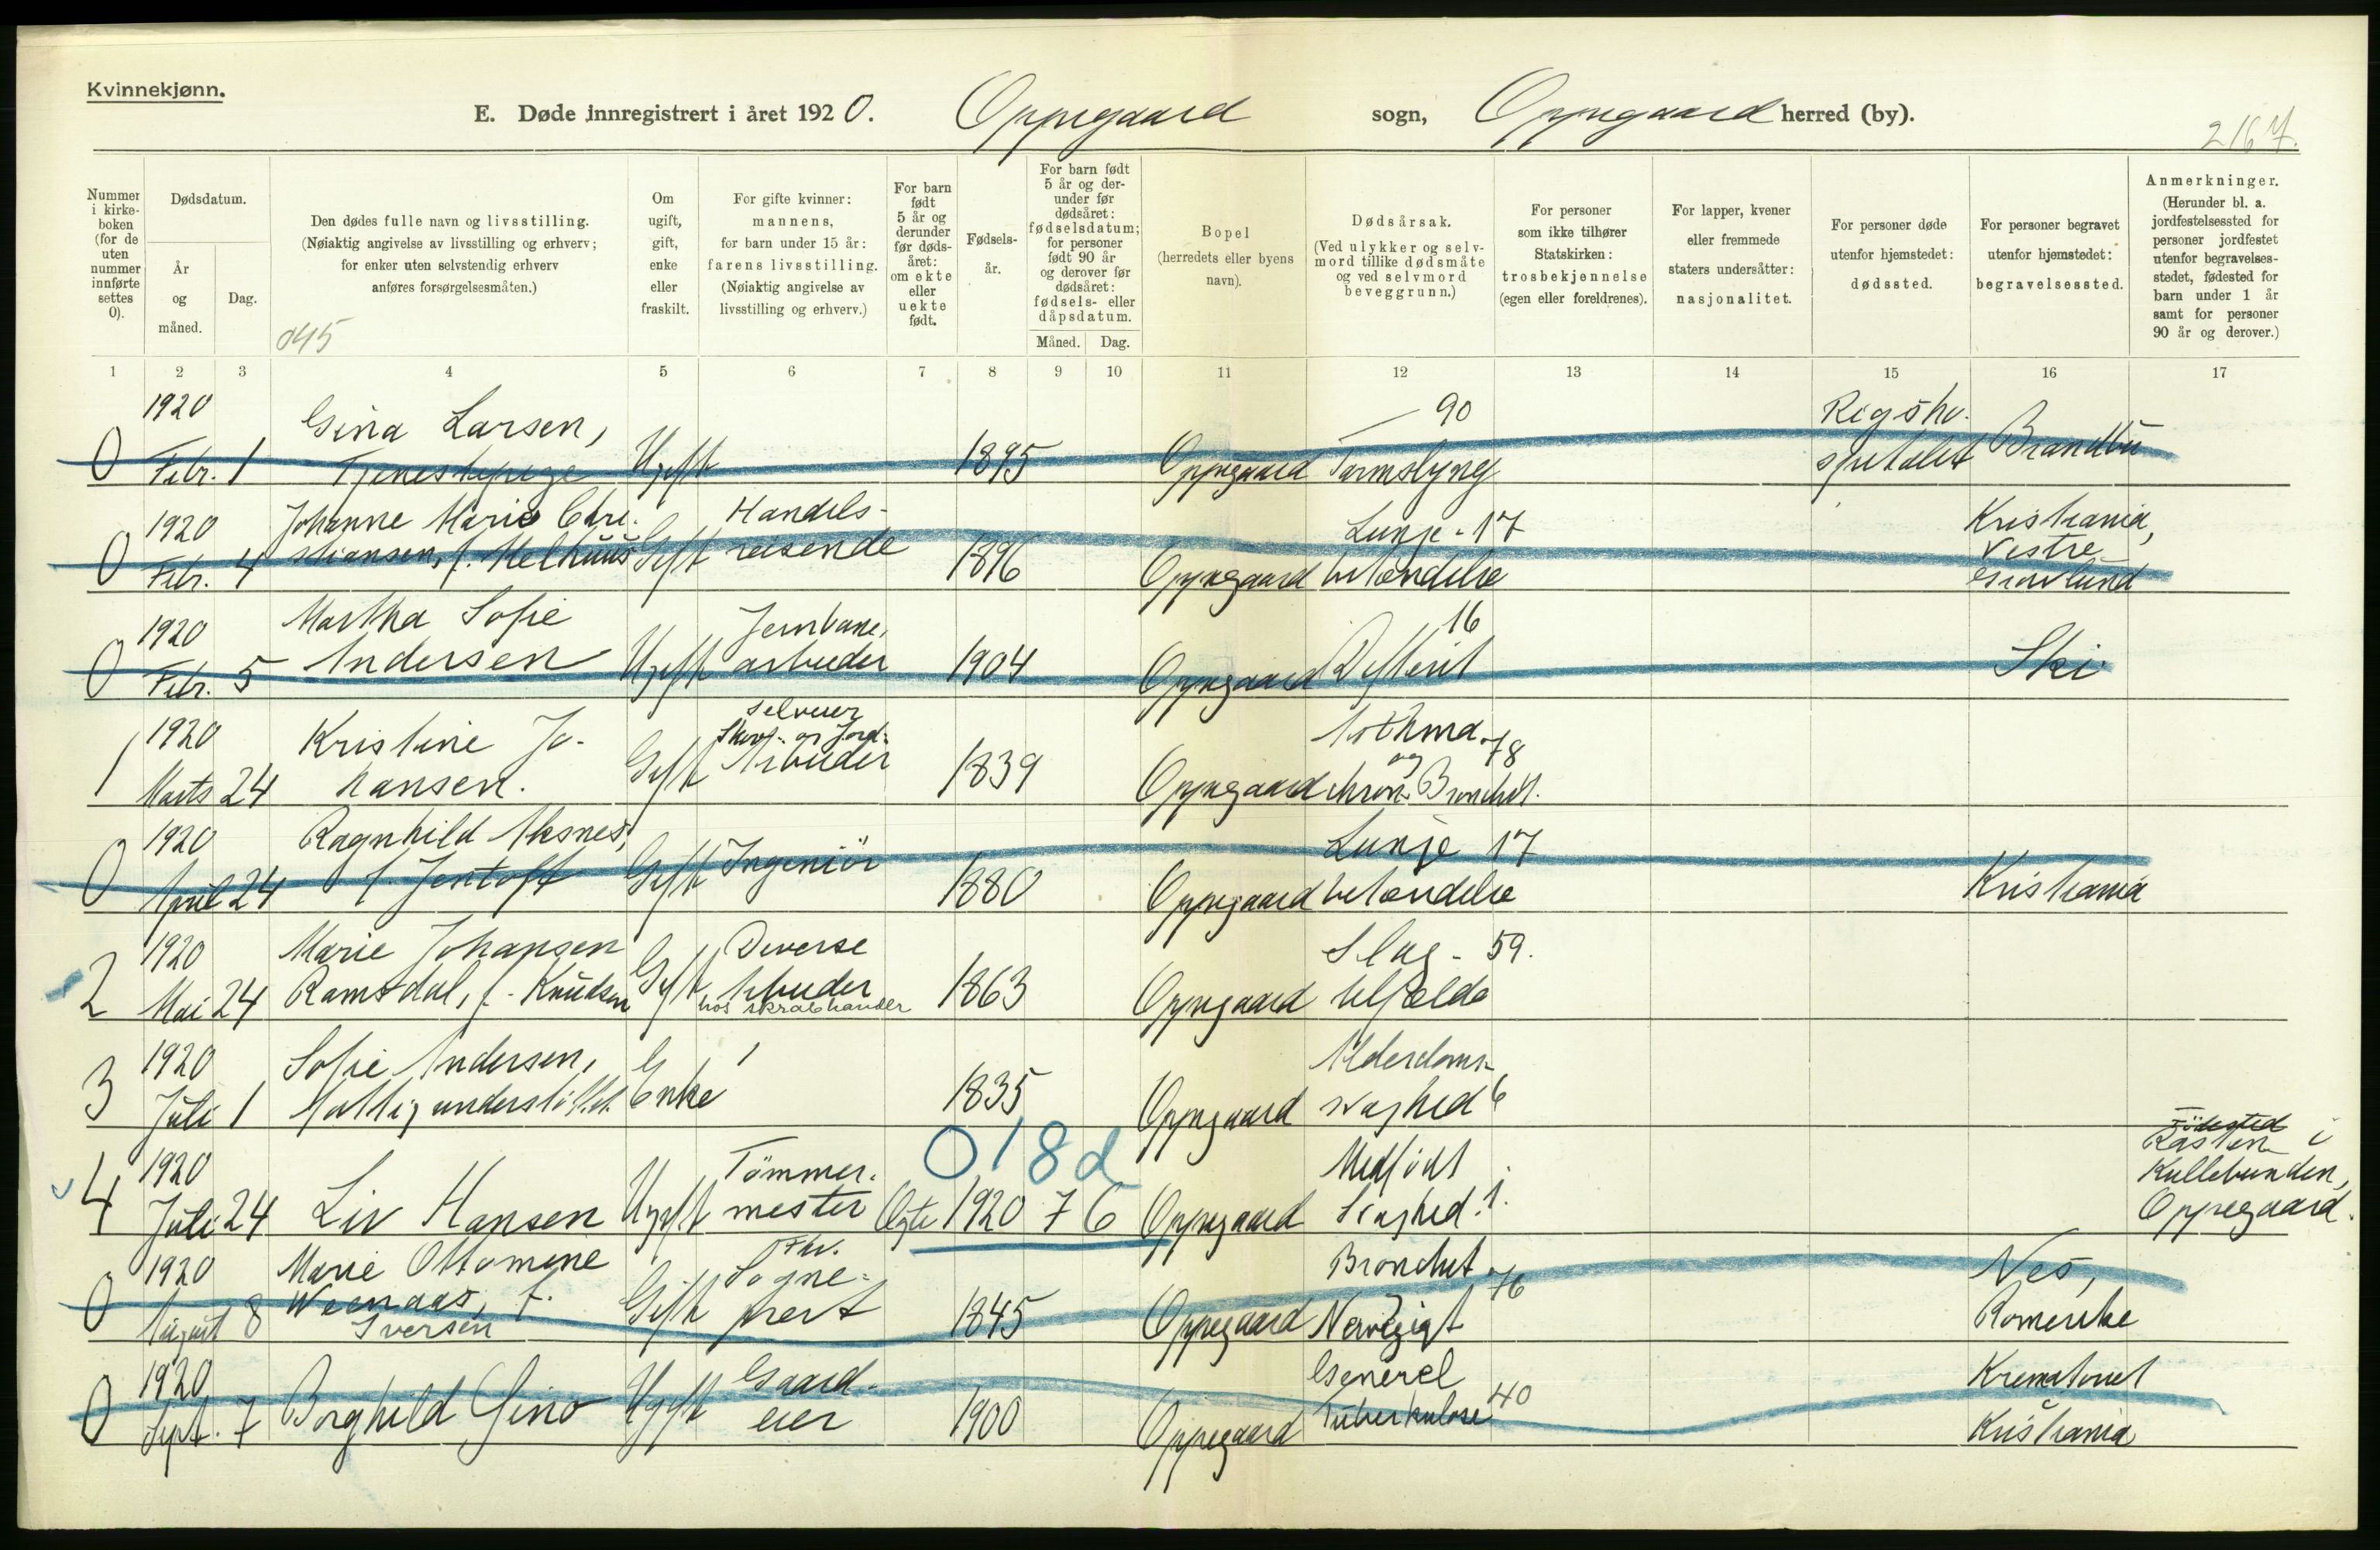 Kvinnekjønn.
E. Døde innregistrert i året 1920. Oppegaard sogn, Oppegaard herred (by).
2167.
Nummer i kirkeboken (for de uten nummer innførte settes 0).
Dødsdatum.
År og måned.
Dag.
Den dødes fulle navn og livsstilling.
(Nøiaktig angivelse av livsstilling og erhverv;
for enker uten selvstendig erhverv
anføres forsørgelsesmåten.)
045
Om ugift, gift, enke eller fraskilt.
For gifte kvinner:
mannens,
for barn under 15 år:
farens livsstilling.
(Nøiaktig angivelse av
livsstilling og erhverv.)
For barn født 5 år og derunder før dødsåret: om ekte eller uekte født.
Fødselsår.
For barn født 5 år og derunder før dødsåret: fødselsdatum; for personer født 90 år og derover før dødsåret: fødsels- eller dåpsdatum.
Måned. Dag.
Bopel
(herredets eller byens
navn).
Dødsårsak.
(Ved ulykker og selvmord tillike dødsmåte
og ved selvmord
beveggrunn.)
For personer
som ikke tilhører
Statskirken:
trosbekjennelse
(egen eller foreldrenes).
For lapper, kvener
eller fremmede
staters undersåtter:
nasjonalitet.
For personer døde
utenfor hjemstedet:
dødssted.
For personer begravet
utenfor hjemstedet:
begravelsessted.
Anmerkninger.
(Herunder bl. a.
jordfestelsessted for
personer jordfestet
utenfor begravelsesstedet, fødested for
barn under 1 år
samt for personer
90 år og derover.)
1 2 3 4 5 6 7 8 9 10 11 12 13 14 15 16 17
1920 Gina Larsen, 90 Rigsho-
0 Febr. 1 Tjenestepige Ugift 1895 Oppegaard Tarmslyng spitalet Brandbu
1920 Johanne Marie Chri- Handels- Lunge- 17 Kristiania,
0 Febr. 4 stiansen, f. Melhuus Gift reisende 1896 Oppegaard betændelse Vestre Gravlund
1920 Martha Sofie Jernbane- 16
0 Febr. 5 Andersen Ugift arbeider 1904 Oppegaard Difterit Ski
1920 Kristine Jo- Selveier Skovs- og Jord- Asthma 78
1 Marts 24 hansen. Gift Arbeider 1839 Oppegaard og chron. Bronchit.
1920 Ragnhild Aksnes, Lunge 17
0 April 24 f. Jentoft Gift Ingeniör 1880 Oppegaard betændelse Kristiania
1920 Marie Johansen Diverse Slag- 59.
2 Mai 24 Ramsdal, f. Knudsen Gift Arbeider hos skrabhandler 1863 Oppegaard tilfælde
1920 Sofie Andersen, Alderdoms-
3 Juli 1 Fattigunderstöttet. Enke 1835 Oppegaard svaghed 6
018d
1920 Tömmer- Medfödt Födested
4 Juli 24 Liv Hansen Ugift mester Ægte 1920 7 6 Oppegaard Svaghed. 1. i
Kullebunden,
Oppegaard.
1920 Marie Ottomine Fhv. Sogne- Bronchit 76 Nes,
0 August 8 Weenaas, f. Iversen Gift prest 1845 Oppegaard Nervegigt Romerike
1920 Gaard- Generel 40 Krematoriet
0 Sept. 7 Borghild Gino Ugift eier 1900 Oppegaard Tuberkulose Kristiania